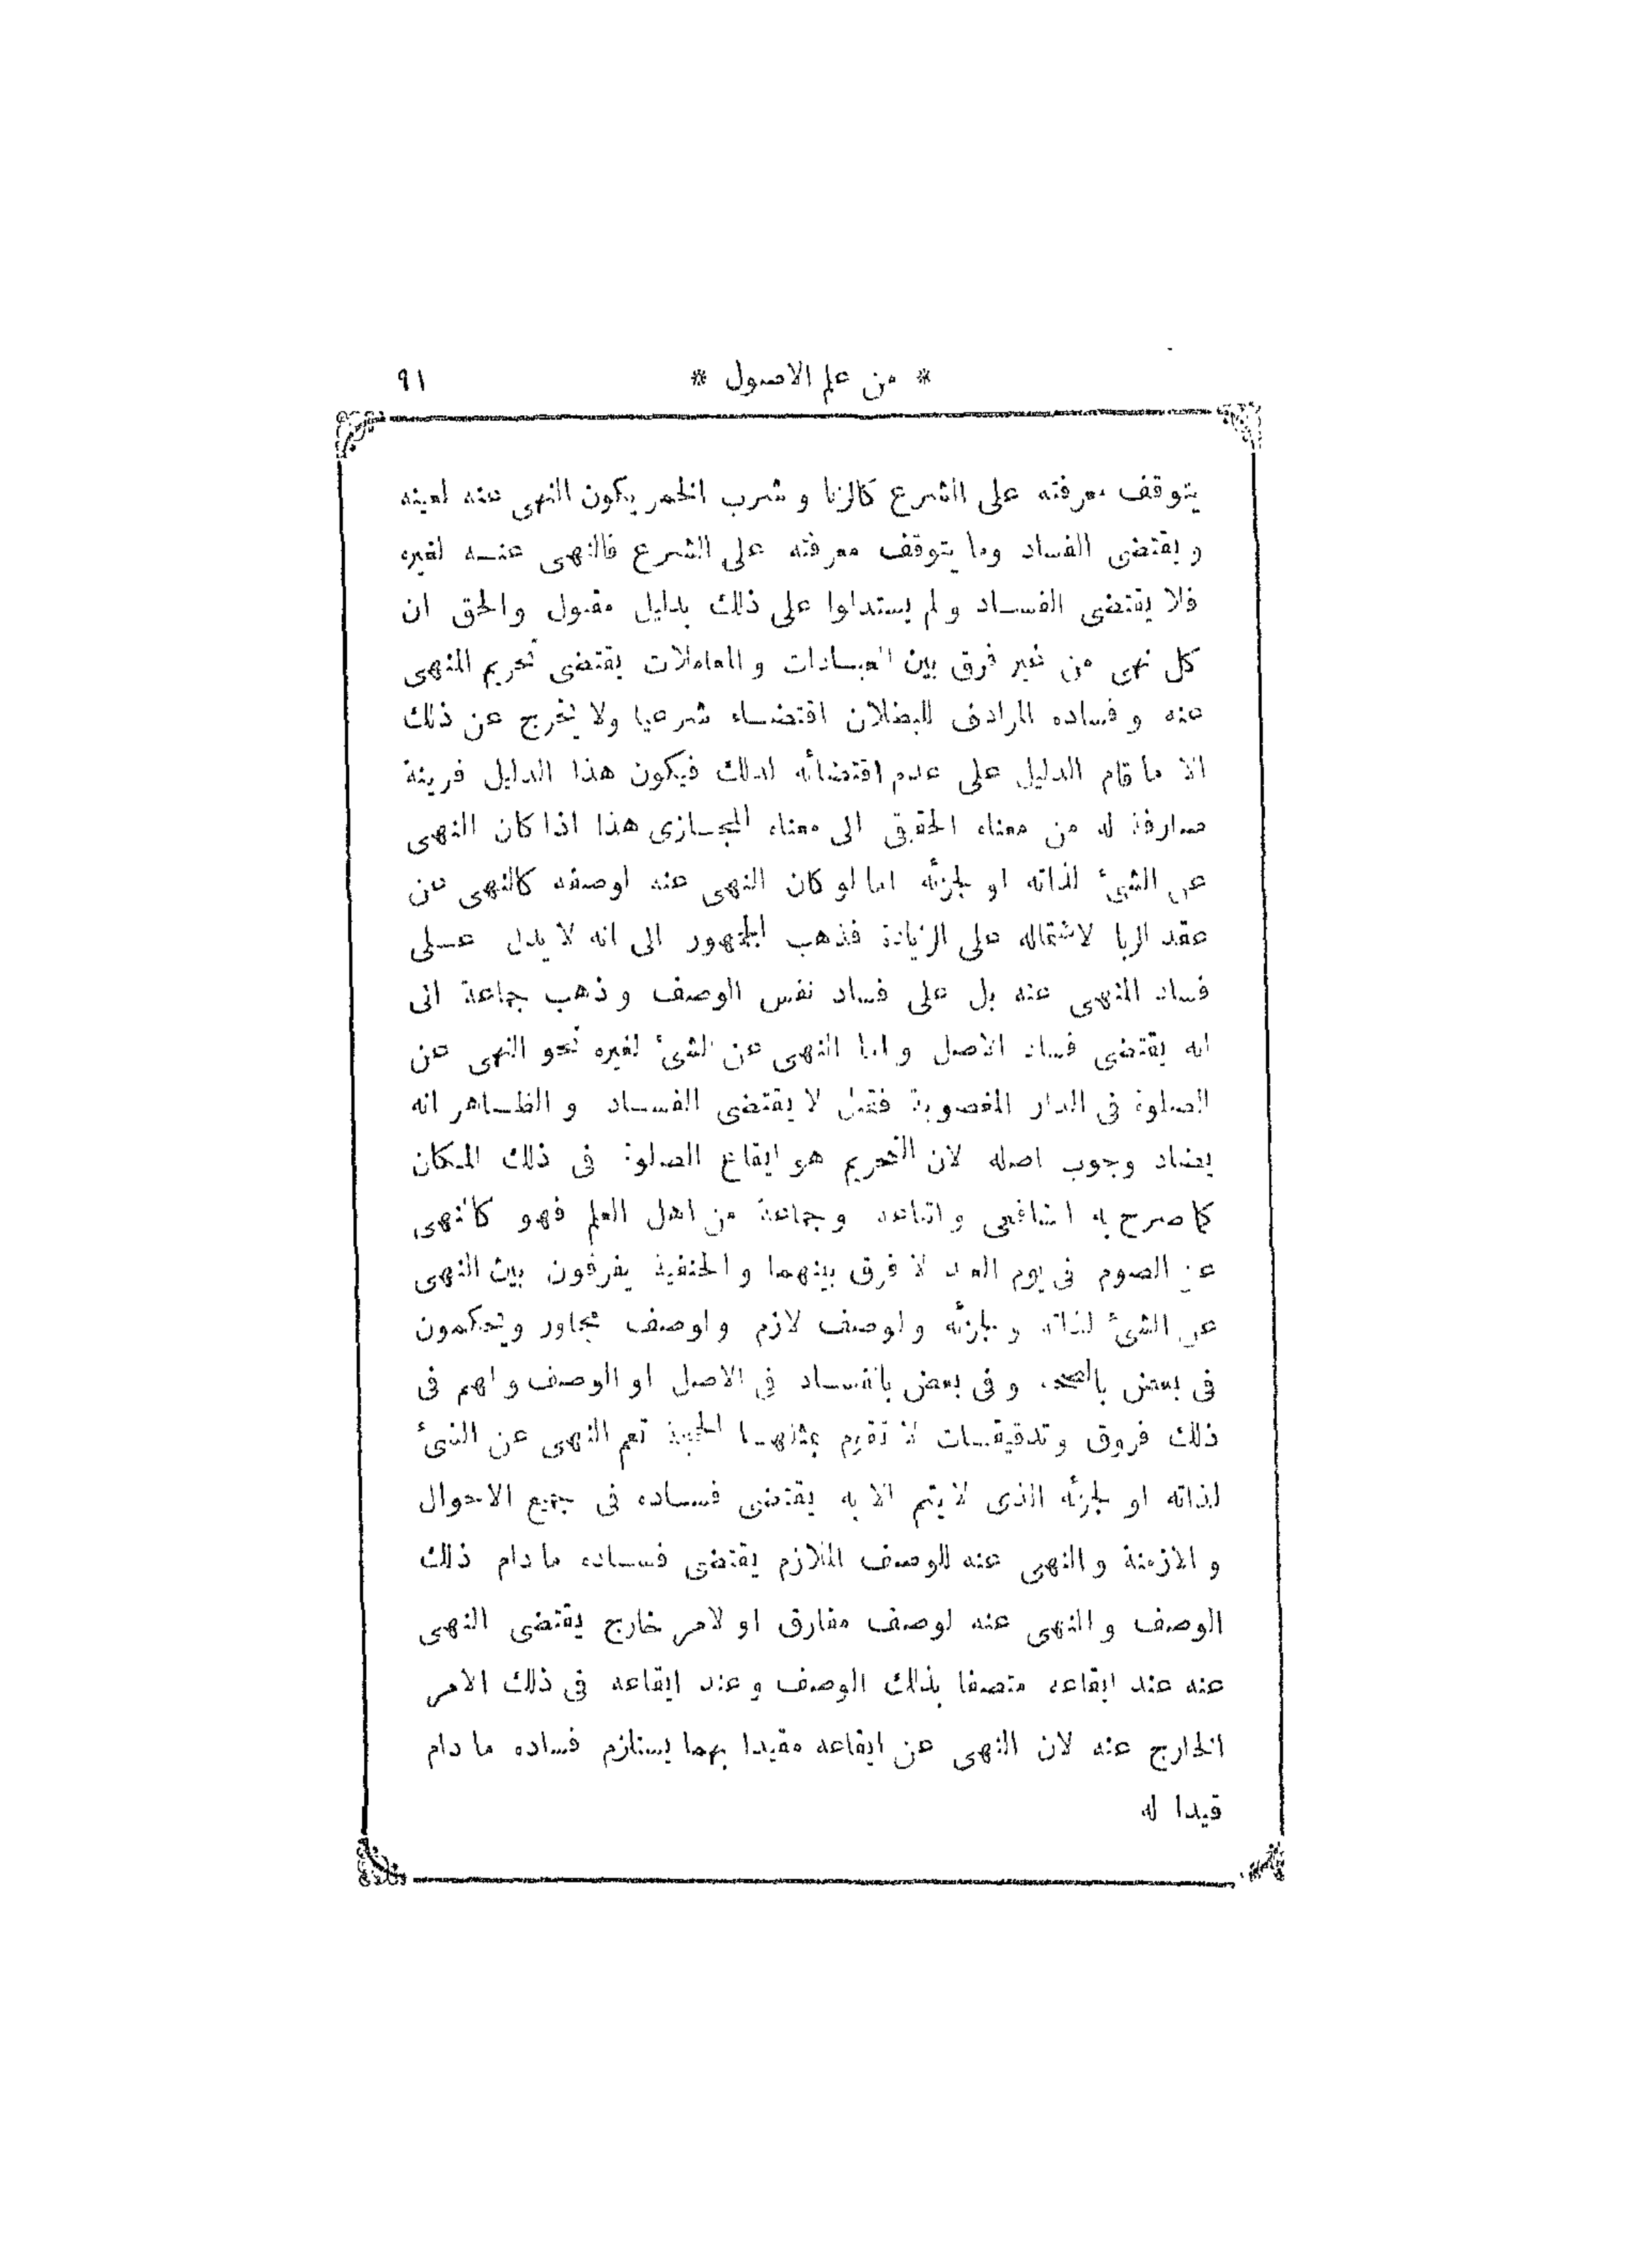 * من علم الاصول *
٩١
يتوقف معرفته على الشرع كالزنا وشرب الخمر يكون النهى عنه لعينه
ويقتضى الفساد وما يتوقف معرفته على الشرع فالنهى عنه لغيره
فلا يقتضى الفساد ولم يستدلوا على ذلك بدليل مقبول والحق ان
كل نهى من غير فرق بين العبادات والمعاملات يقتضى تحريم المنهى
عنه وفساده المرادف للبطلان اقتضاء شرعيا ولا يخرج عن ذلك
الا ما قام الدليل على عدم اقتضائه لذلك فيكون هذا الدليل قرينة
صارفة له من معناه الحقيقى الى معناه المجازى هذا اذا كان النهى
عن الشئ لذاته او لجزئه اما لو كان النهى عنه لوصفه كالنهى عن
عقد الربا لاشتماله على الزيادة فذهب الجمهور الى انه لا يدل على
فساد المنهى عنه بل على فساد نفس الوصف وذهب جماعة الى
انه يقتضى فساد الاصل واما النهى عن الشئ لغيره نحو النهى عن
الصلوة فى الدار المغصوبة فقيل لا يقتضى الفساد والظاهر انه
يضاد وجوب اصله لان التحريم هو ايقاع الصلوة فى ذلك المكان
كما صرح به الشافعى واتباعه وجماعة من اهل العلم فهو كالنهى
عن الصوم فى يوم العيد لا فرق بينهما والحنفية يفرقون بين النهى
عن الشئ لذاته ولجزئه ولوصف لازم ولوصف مجاور ويحكمون
فى بعض بالصحة وفى بعض بالفساد فى الاصل او الوصف ولهم فى
ذلك فروق وتدقيقات لا تقوم بمثلها الحجة نعم النهى عن الشئ
لذاته او لجزئه الذى لا يتم الا به يقتضى فساده فى جميع الاحوال
والازمنة والنهى عنه للوصف الملازم يقتضى فساده ما دام ذلك
الوصف والنهى عنه لوصف مفارق او لامر خارج يقتضى النهى
عنه عند ايقاعه متصفا بذلك الوصف وعند ايقاعه فى ذلك الامر
الخارج عنه لان النهى عن ايقاعه مقيدا بهما يستلزم فساده ما دام
قيدا له